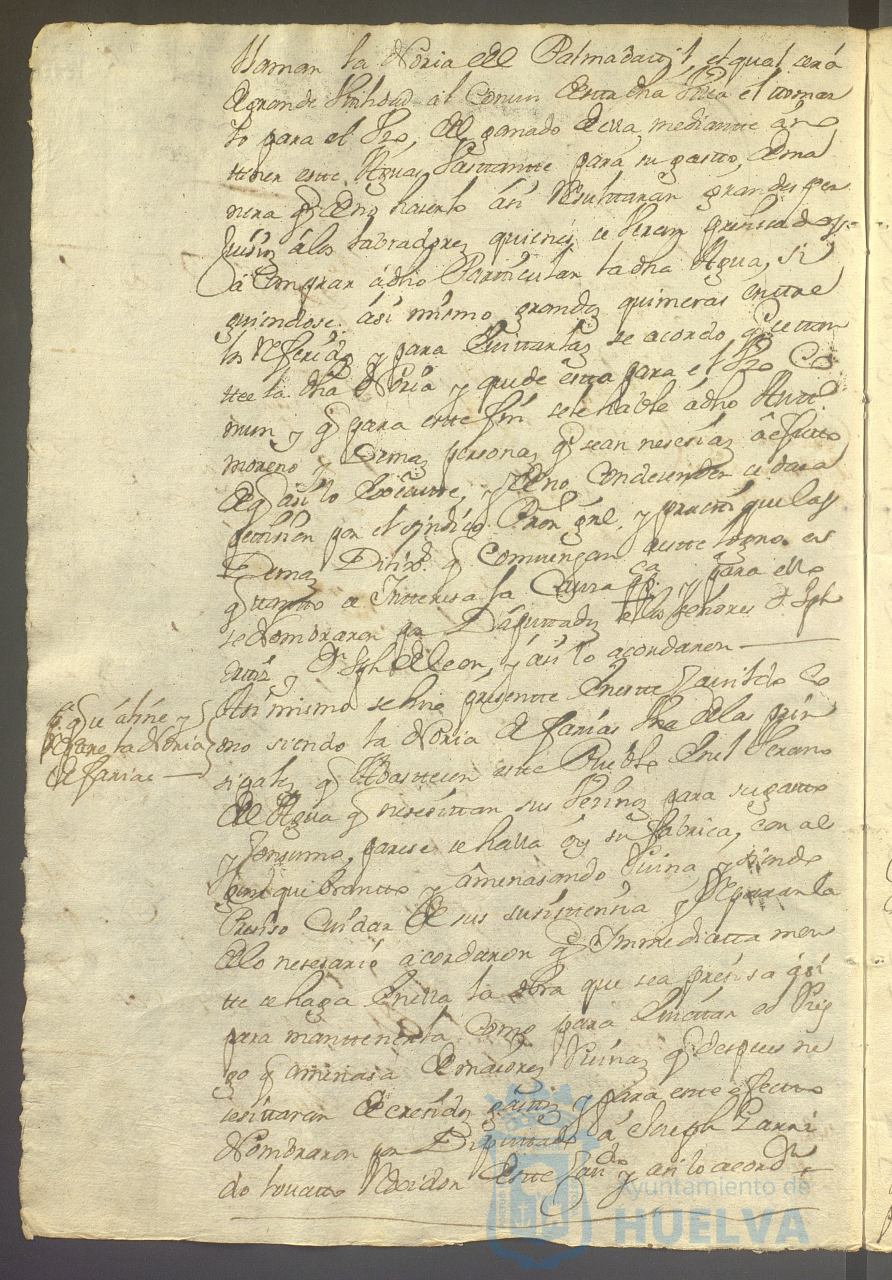 llaman la Noria del Palmar el qual será
de grande Utilidad al Comun desta dha Villa el tomar
lo para el Uso del ganado della mediante a no
tener este Agua bastante para su gasto, de ma
nera q de no haserlo asi Resultaran grandes per
juisios a los labradores quienes se veran presisados
a Comprar a dho Particular la dha Agua, si
guiendose asi mismo grandes quimeras entre
los Referidos y para evitarlas se acordo q se tan
tee la dha Noria y quede esta para el Uso Co
mun y q para este fin se le hable a dho
moreno y demas personas q sean nesesarias a efecto
de q asi lo execute, y de no Condesender se dara
petision por el sindico Pror gnl. y practique las
demas Dilixs. q Combengan a este logro en
q tanto se Interesa la Causa pca. y para ello
se Nombraron por Diputados a los señores D. Jph
y Dn Jph de Leon, y asi lo acordaron
Asi mismo se hiso presente en este Cavildo Co
mo siendo la Noria de farias Una de las prin
sipales q Abastesen este Pueblo en el Verano
del Agua q nesesitan sus Vesinos para su gasto
y Consumo, parese se halla oy su fabrica, con al
gun quebranto y amenasando Ruina y siendo
Presiso Cuidar de sus susistensia y Repararla
de lo nesesario acordaron q Inmediatamen
te se haga en ella la obra que sea presisa asi
para mantenerla Como para evitar el Ries
go q aminasa de maiores Ruinas q despues ne
sesitaran de cresidos gastos y para este efecto
Nombraron por Diputado a Joseph Garri
do Lovatto Rexidor deste Cavdo y asi lo acordn
sre q se aliñe y
Repare la Noria
de farias
Ayuntamiento de
HUELVA